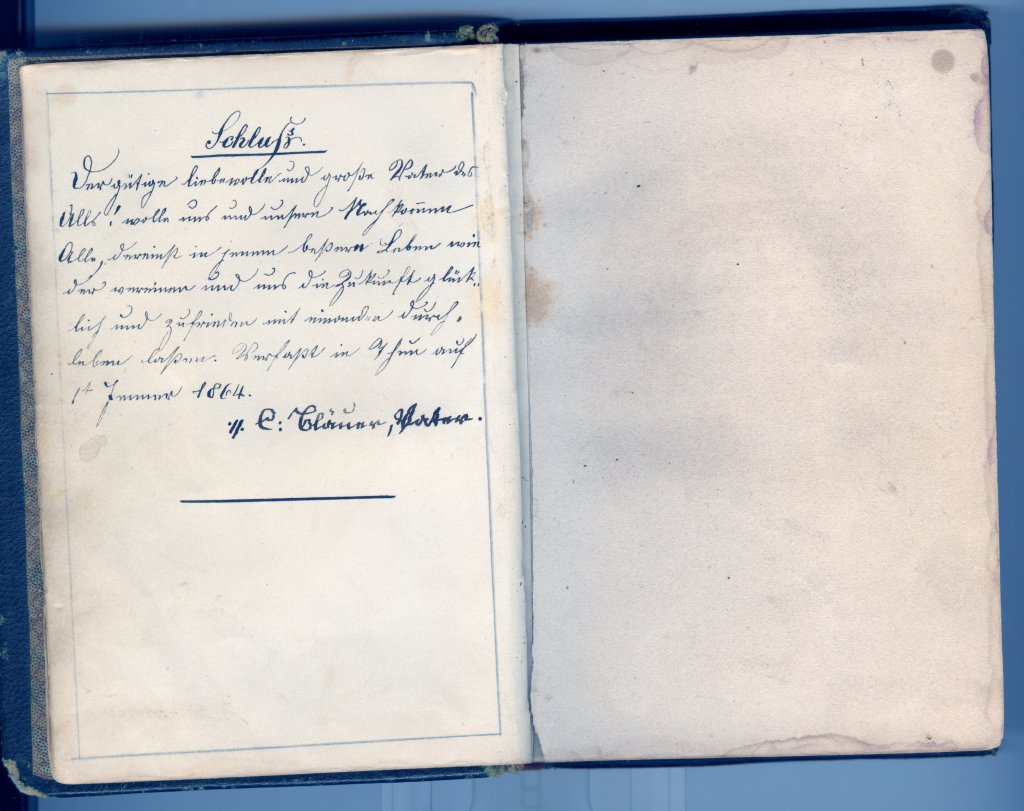 Schluß.
Der gütige liebevolle und große Vater des
Alls! wolle uns und unsere Nachkom̄en
Alle, dereinst in jenem beßern Leben wie
der vereinen und uns die Zukunft glück-
lich und zufrieden mit einander durch-
leben laßen. Verfaßt in Thun auf
1st Jenner 1864.
C: Bläuer, Vater.